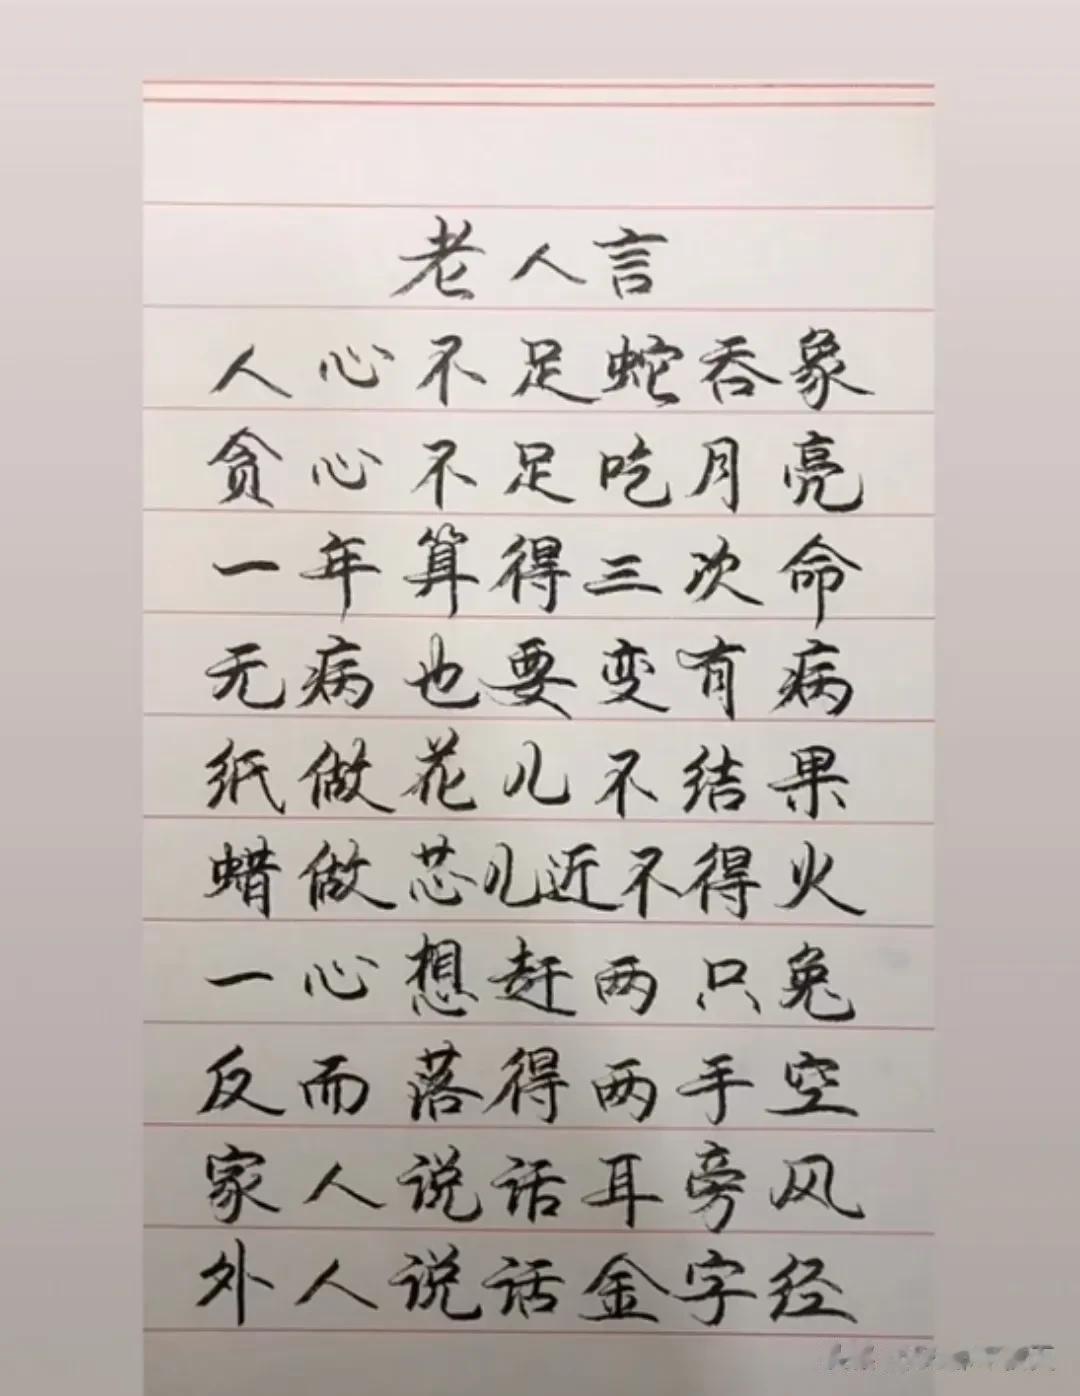 老人言
人心不足蛇吞象
贪心不足吃月亮
一年算得三次命
无病也要变有病
纸做花儿不结果
蜡做芯儿近不得火
一心想赶两只兔
反而落得两手空
家人说话耳旁风
外人说话金字经